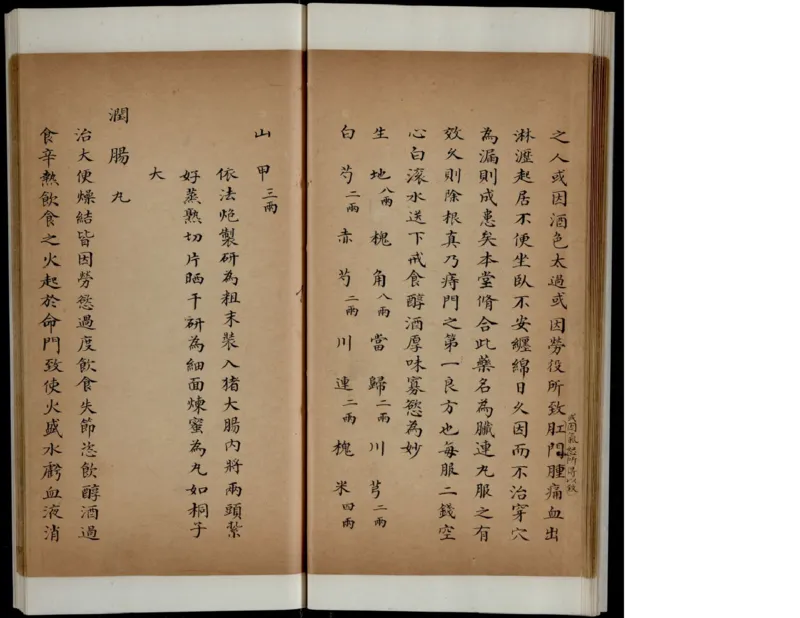 之人或因酒色太過或因勞役所致肛門腫痛血出
淋漓起居不便坐臥不安纏綿日久因而不治穿穴
為漏則成患矣本堂脩合此藥名為臟連丸服之有
效久則除根真乃痔門之第一良方也每服二錢空
心白滚水送下戒食醇酒厚味寡慾為妙
生地八兩 槐角八兩 當歸二兩 川芎二兩
白芍二兩 赤芍二兩 川連二兩 槐米四兩
山甲三兩
依法炮製研為粗末裝入猪大腸內將兩頭繫
好蒸熟切片晒干研為細面煉蜜為丸如桐子
大
潤腸丸
治大便燥結皆因勞慾過度飲食失節恣飲醇酒過
食辛熱飲食之火起於命門致使火盛水虧血液消